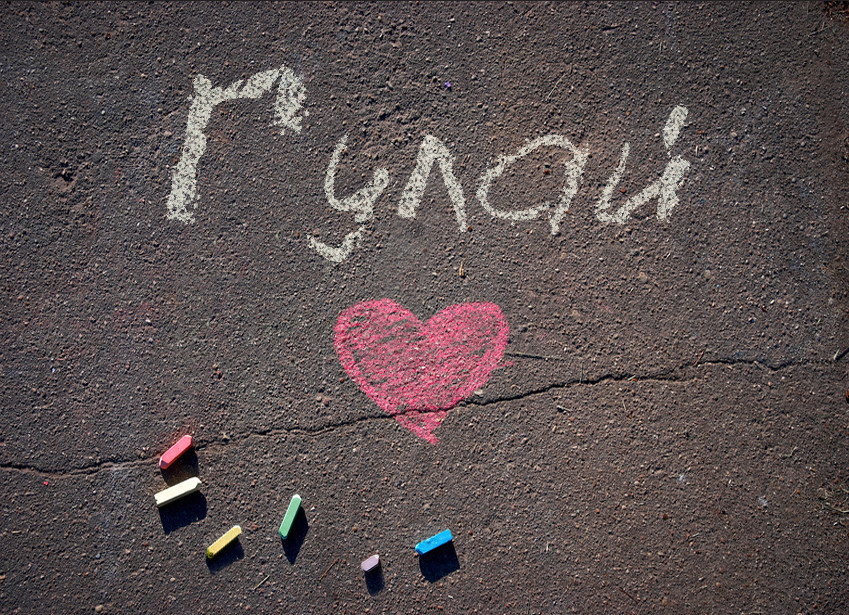 Гулай